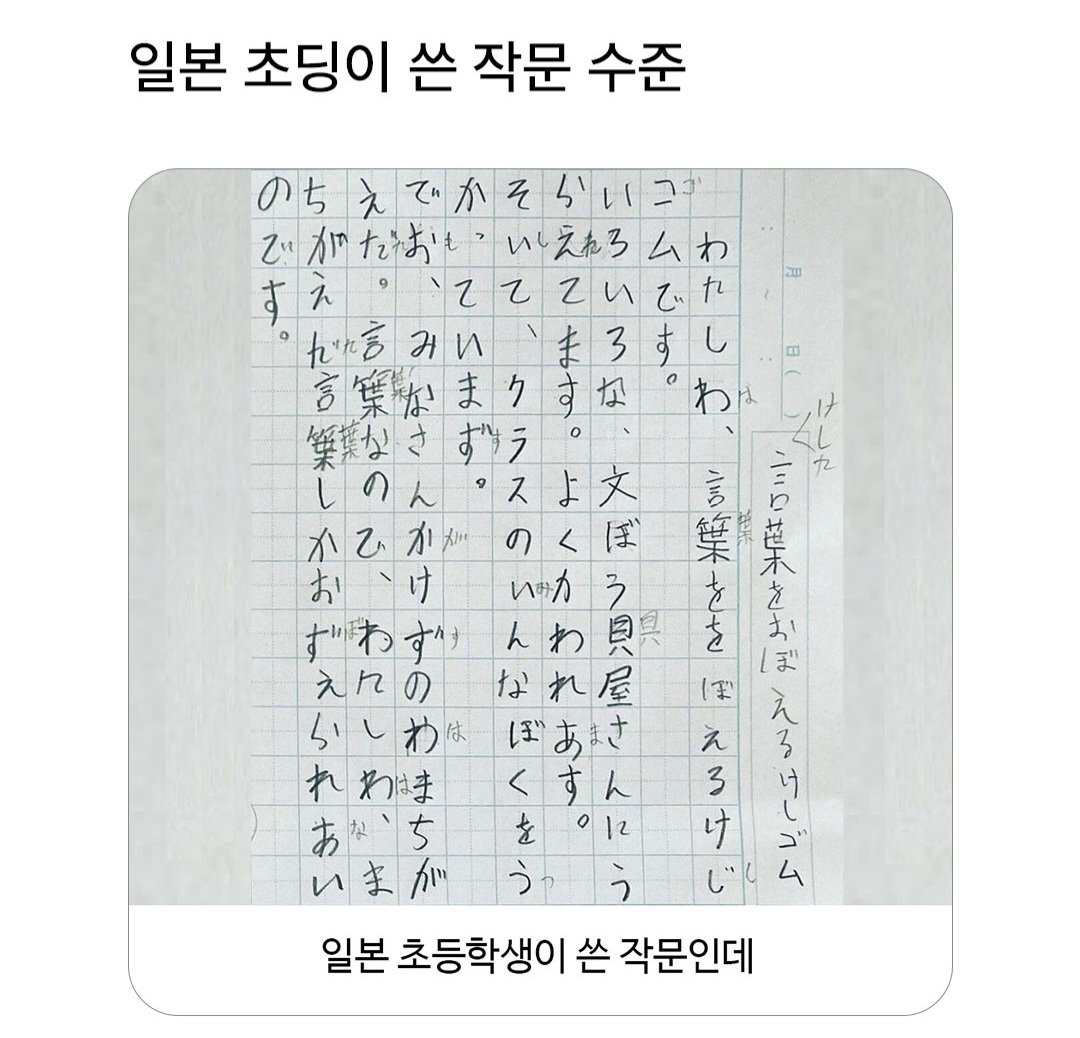 일본 초딩이 쓴 작문 수준
月 日(
けした
言葉をおぼえるけしゴム
わたしわ、言葉ををぼえるけじ
は 葉 し
コムです。
ゴ
いろいろな、文ぼう貝屋さんにう
具
らえてます。よくかわれあす。
れ ま
そいて、クラスのいんなぼくをう
し み つ
かっていまず。
す
でお、みなさんかけずのわまちが
も が す は
えだ。言葉なのひ、わたしわ、ま
た 葉 は
ちがえだ言葉しかおずえられあい
た 葉 ぼ な
のです。
일본 초등학생이 쓴 작문인데